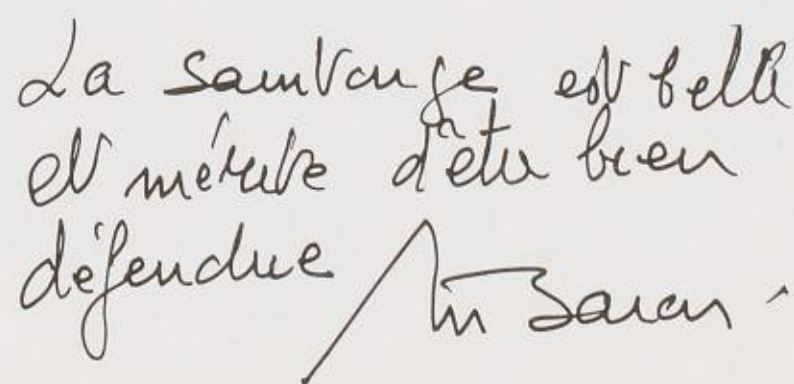 La Saintonge est belle
et mérite d'être bien
défendue